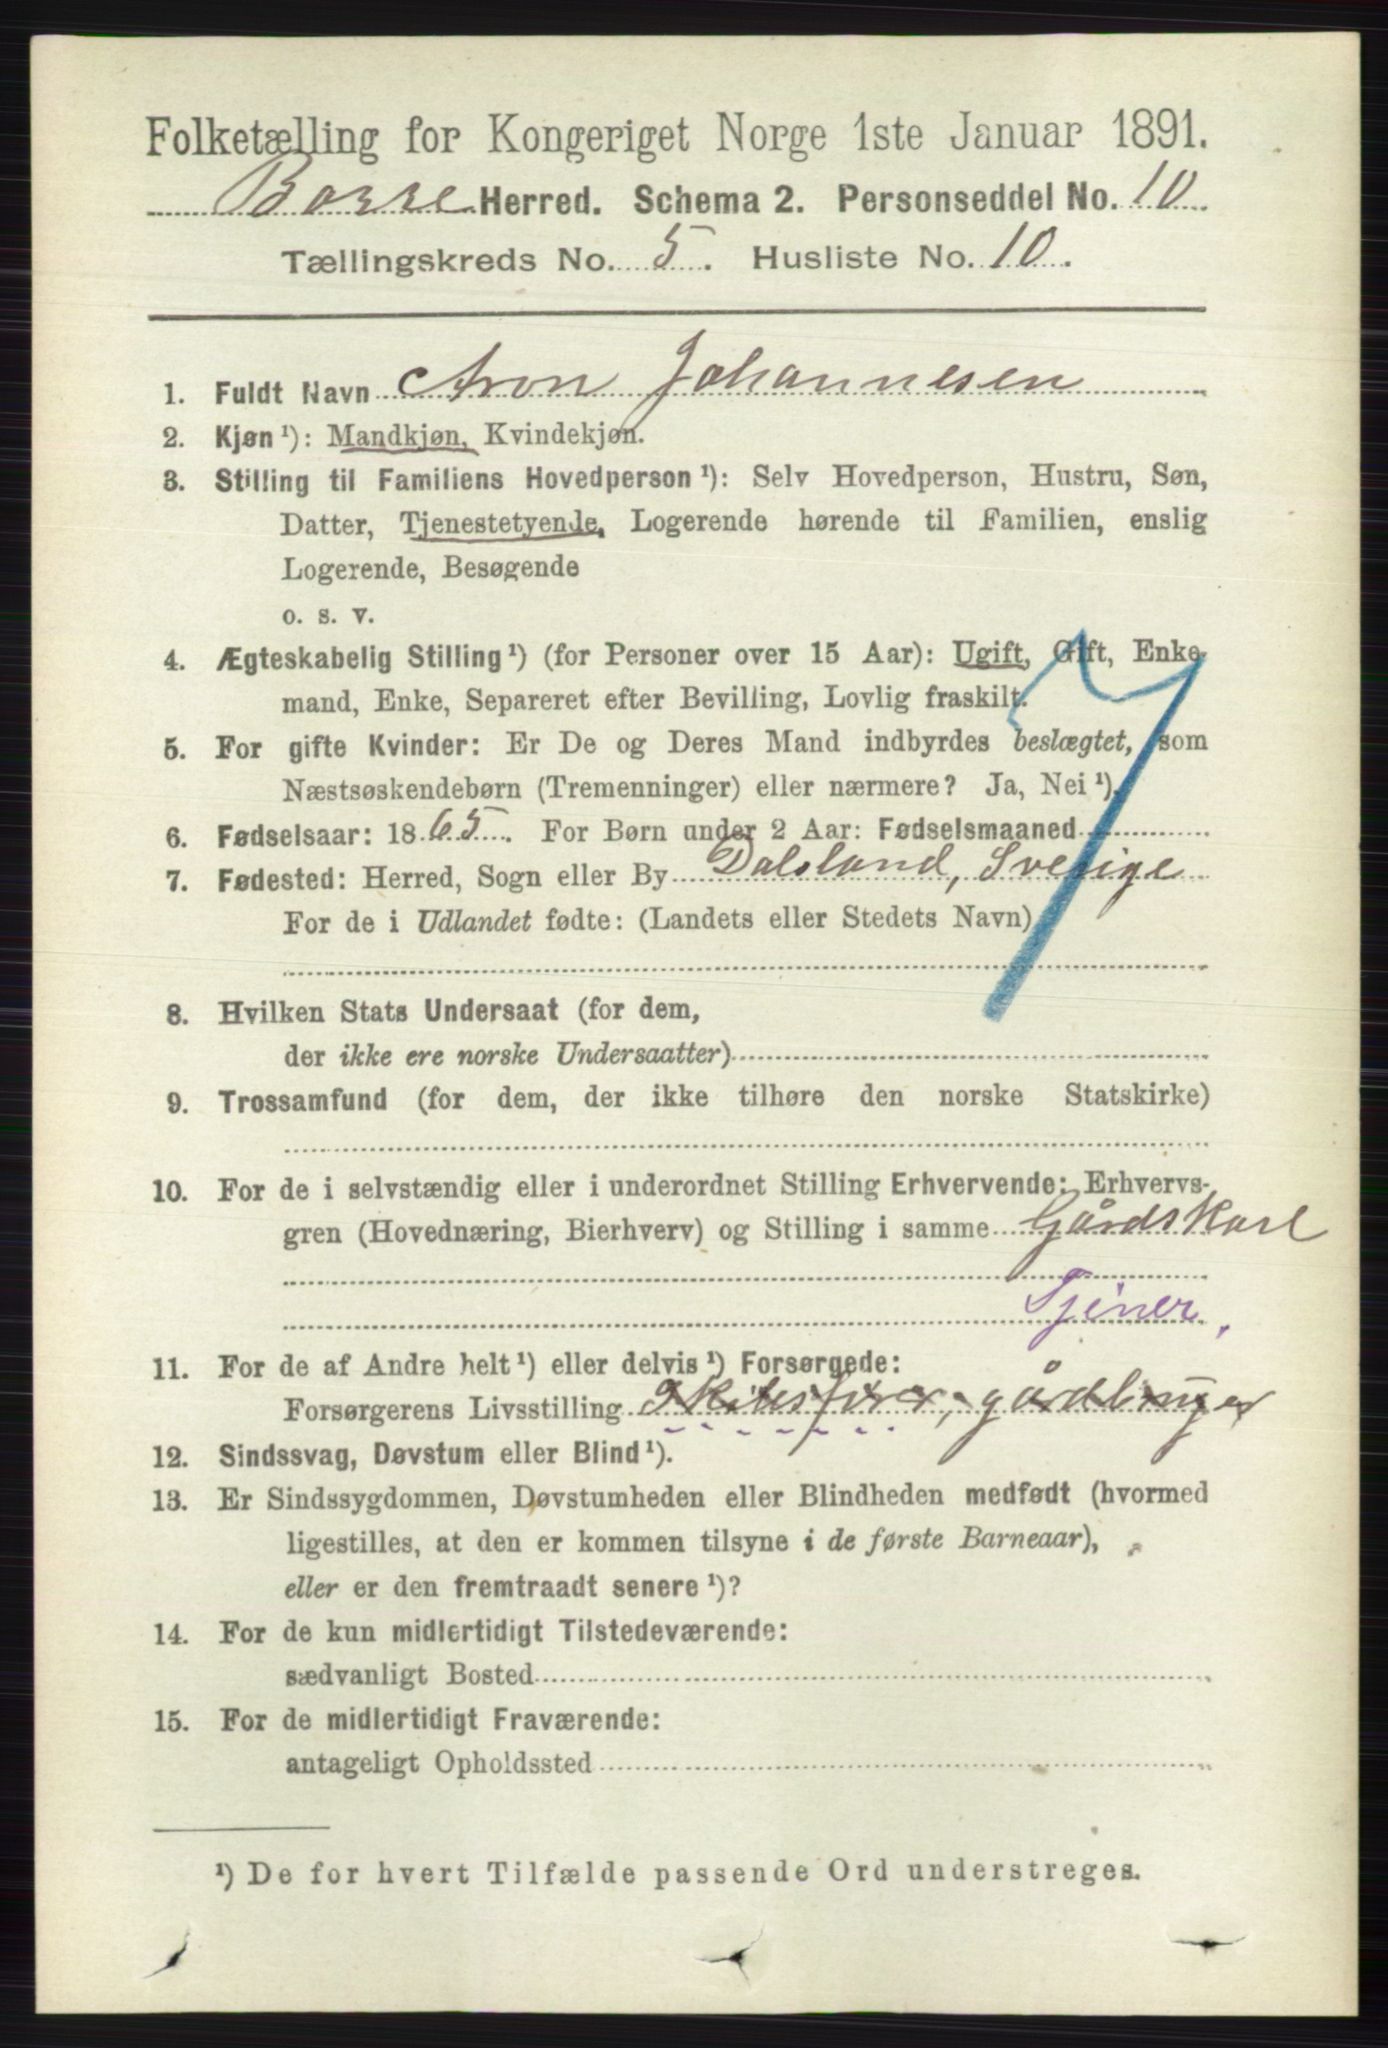 Folketælling for Kongeriget Norge 1ste Januar 1891.
Borre Herred. Schema 2. Personseddel No. 10
Tællingskreds No. 5. Husliste No. 10.
1. Fuldt Navn Aron Johannesen
2. Kjøn ¹): Mandkjøn, Kvindekjøn.
3. Stilling til Familiens Hovedperson ¹): Selv Hovedperson, Hustru, Søn,
Datter, Tjenestetyende, Logerende hørende til Familien, enslig
Logerende, Besøgende
o. s. v.
4. Ægteskabelig Stilling ¹) (for Personer over 15 Aar): Ugift, Gift, Enke-
mand, Enke, Separeret efter Bevilling, Lovlig fraskilt.
5. For gifte Kvinder: Er De og Deres Mand indbyrdes beslægtet, som
Næstsøskendebørn (Tremenninger) eller nærmere? Ja, Nei ¹).
6. Fødselsaar: 1865. For Børn under 2 Aar: Fødselsmaaned
7. Fødested: Herred, Sogn eller By Dalsland, Sverige
For de i Udlandet fødte: (Landets eller Stedets Navn)
8. Hvilken Stats Undersaat (for dem,
der ikke ere norske Undersaatter)
9. Trossamfund (for dem, der ikke tilhøre den norske Statskirke)
10. For de i selvstændig eller i underordnet Stilling Erhvervende: Erhvervs-
gren (Hovednæring, Bierhverv) og Stilling i samme Gårdskarl
Tjener.
11. For de af Andre helt ¹) eller delvis ¹) Forsørgede:
Forsørgerens Livsstilling Skibsfører, gårdbruger
12. Sindssvag, Døvstum eller Blind ¹).
13. Er Sindssygdommen, Døvstumheden eller Blindheden medfødt (hvormed
ligestilles, at den er kommen tilsyne i de første Barneaar),
eller er den fremtraadt senere ¹)?
14. For de kun midlertidigt Tilstedeværende:
sædvanligt Bosted
15. For de midlertidigt Fraværende:
antageligt Opholdssted
¹) De for hvert Tilfælde passende Ord understreges.